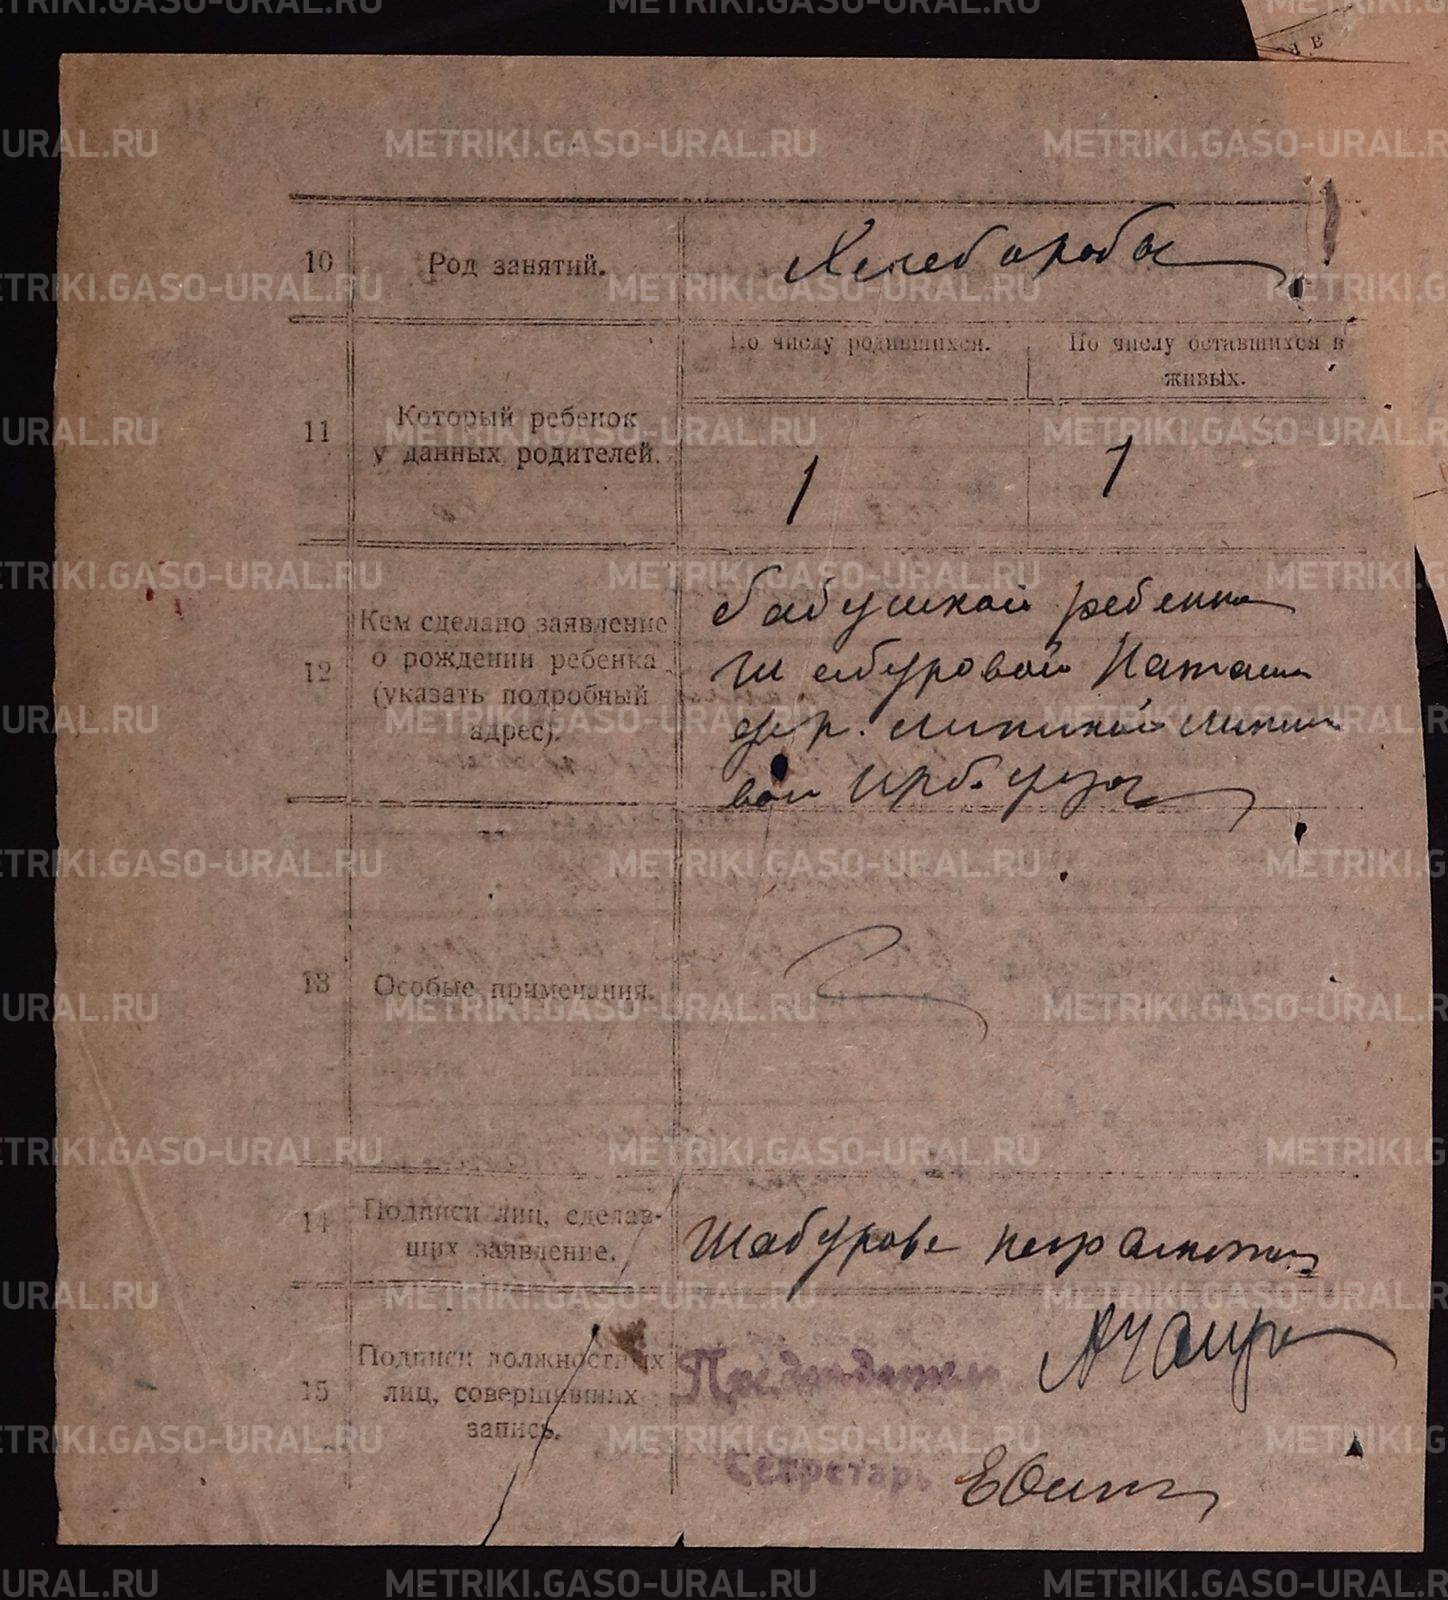 10 Род занятий. Хлеборобы
По числу родившихся. По числу оставшихся в
живых.
11 Который ребенок
у данных родителей. 1 1
12 Кем сделано заявление
о рождении ребенка
(указать подробный
адрес).
бабушкой ребенка
Шабуровой
дер.
Ирб.
13 Особые примечания.
14 Подписи лиц, сделав-
ших заявление.
Шабурова неграмотная
15 Подписи должностных
лиц, совершивших
запись.
Председатель
Секретарь
METRIKI.GASO-URAL.RU